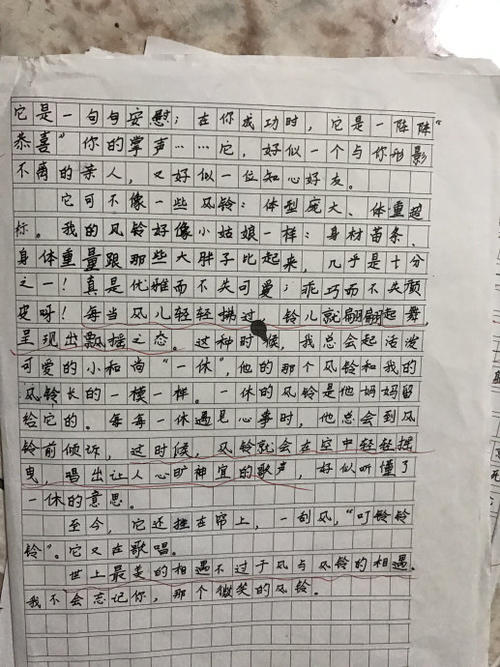 它是一句句安慰；在你成功时，它是一阵阵“
恭喜”你的掌声……它，好似一个与你形影
不离的亲人，又好似一位知心好友。
它可不像一些风铃：体型庞大、体重超
标。我的风铃好像小姑娘一样：身材苗条、
身体重量跟那些大胖子比起来，几乎是十分
之一！真是优雅而不失可爱；乖巧而不失顽
皮呀！每当风儿轻轻拂过，铃儿就翩翩起舞，
呈现出飘摇之态。这种时候，我总会起活泼
可爱的小和尚“一休”，他的那个风铃和我的
风铃长的一模一样。一休的风铃是他妈妈留
给它的。每每一休遇见心事时，他总会到风
铃前倾诉，这时候，风铃就会在空中轻轻摇
曳，唱出让人心旷神宜的歌声，好似听懂了
一休的意思。
至今，它还挂在帘上，一刮风，“叮铃铃
铃”。它又在歌唱。
世上最美的相遇不过于风与风铃的相遇。
我不会忘记你，那个微笑的风铃。